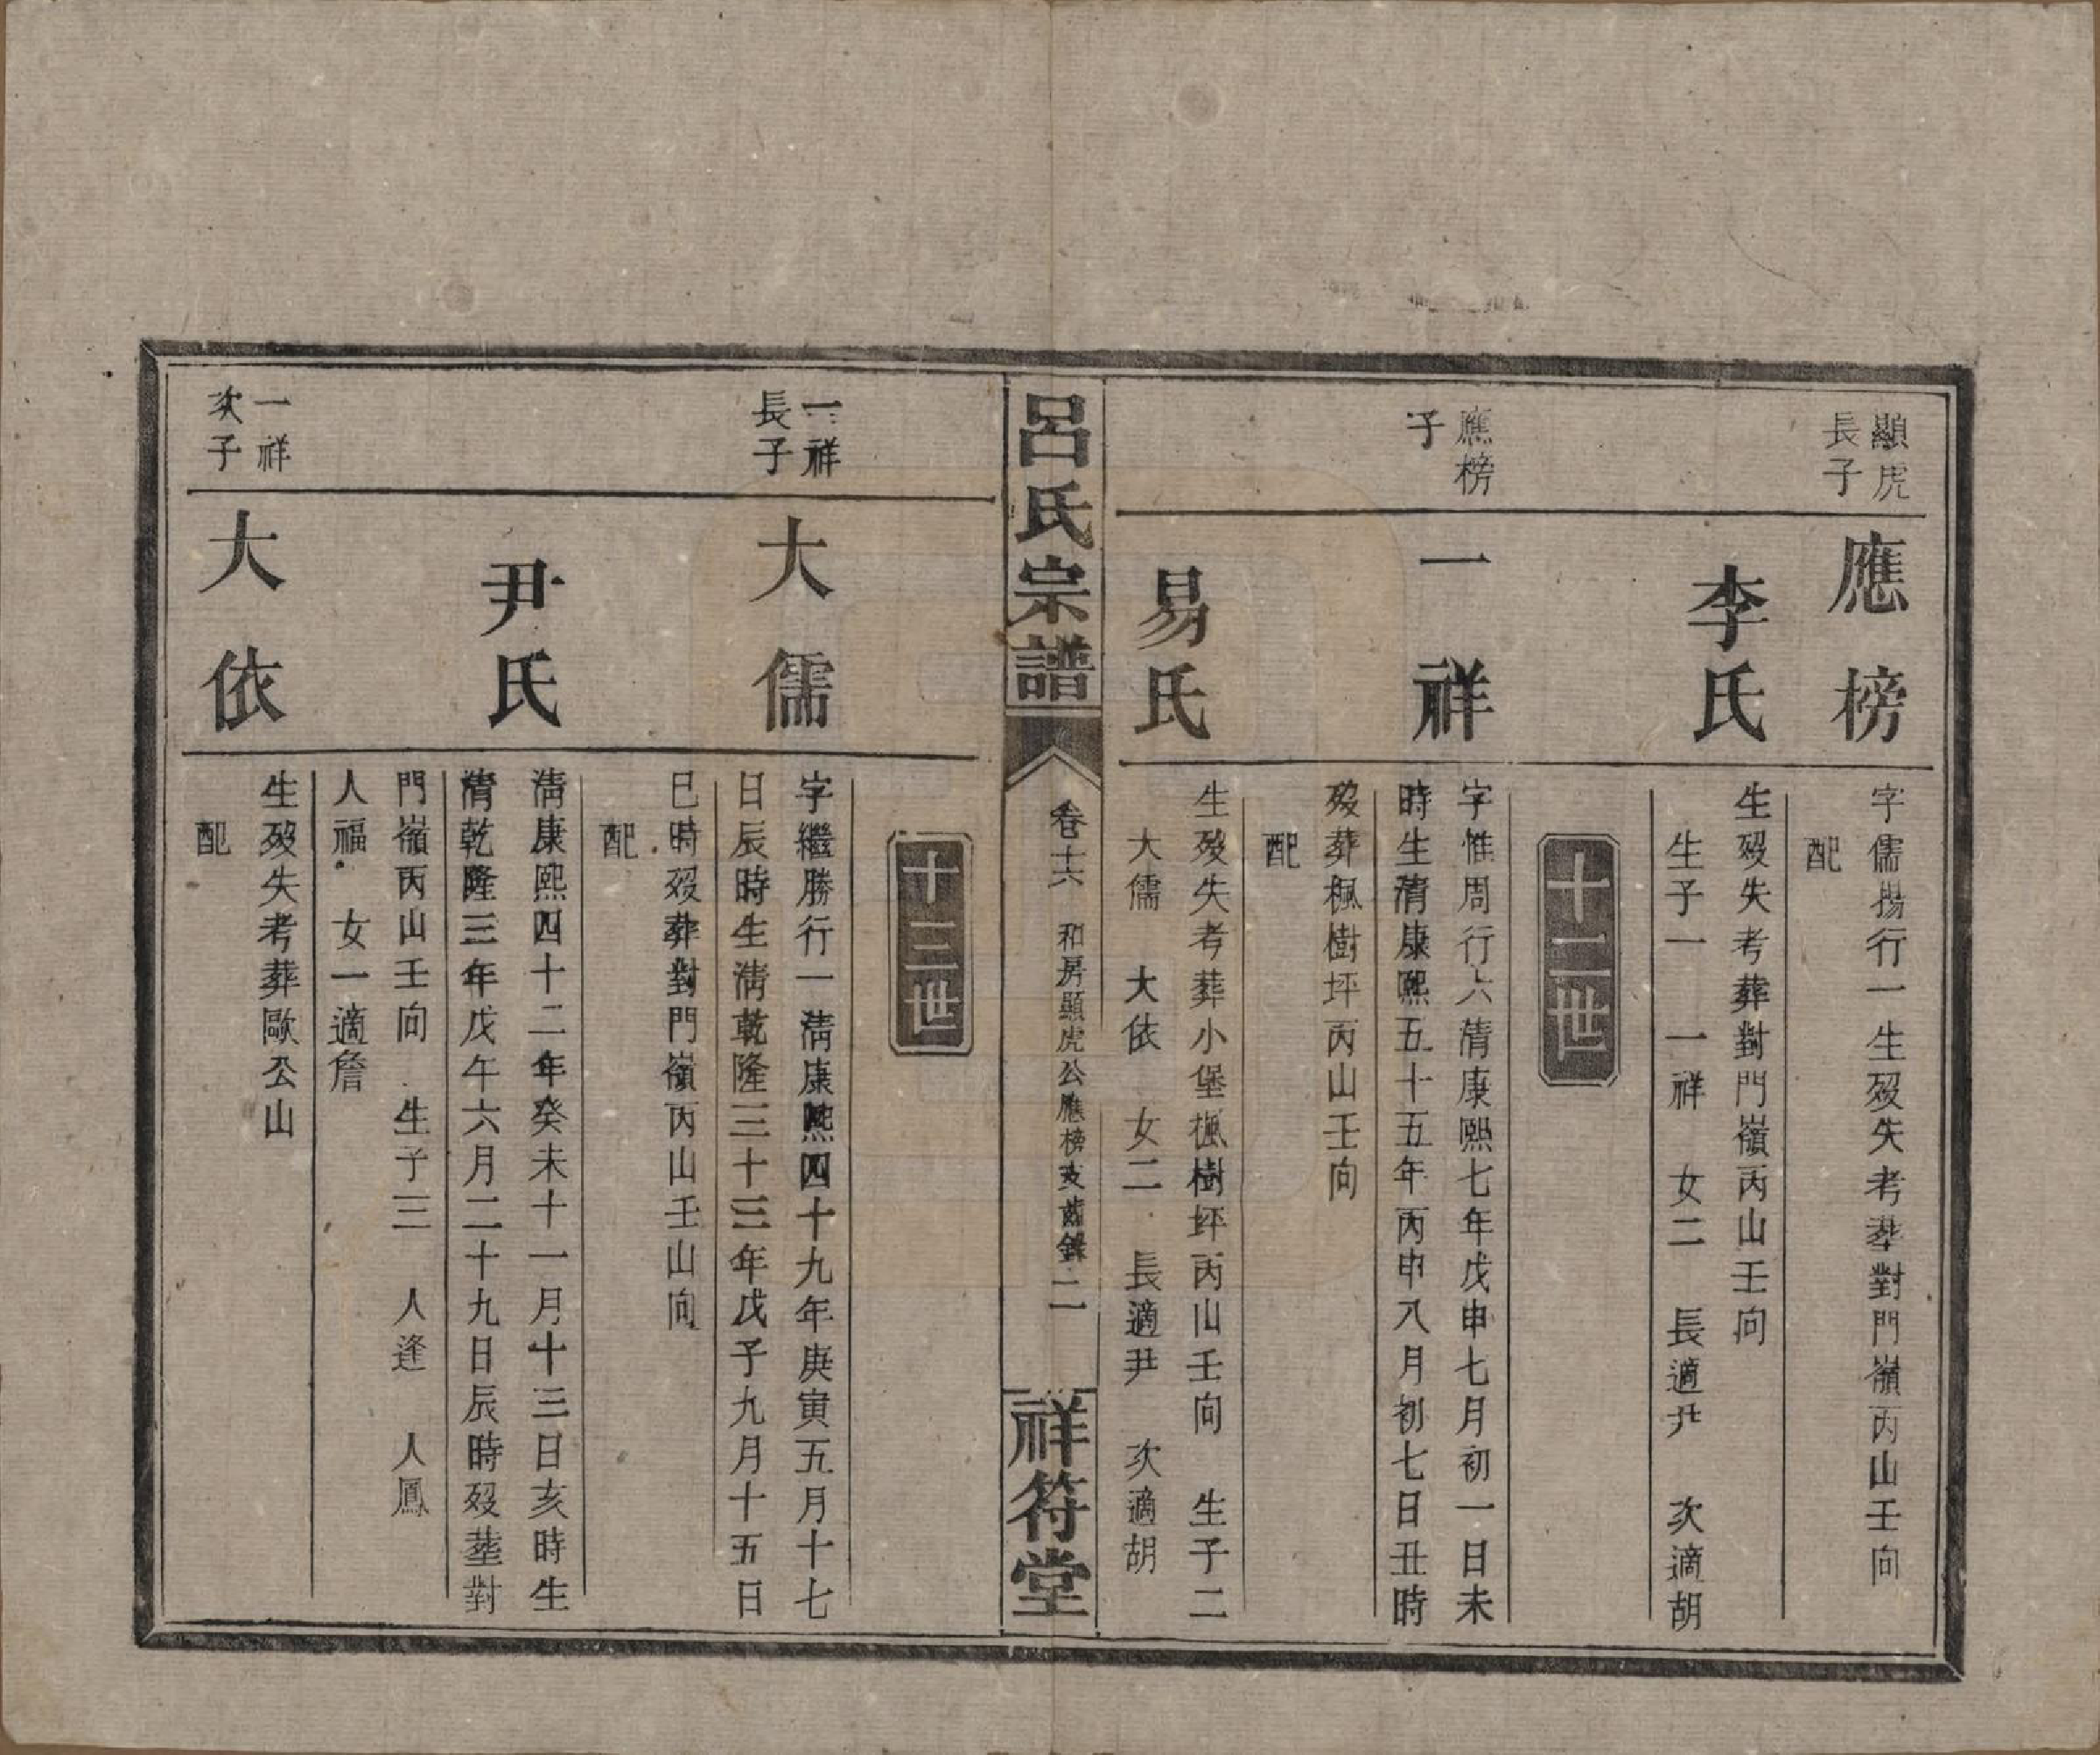 顯虎
長子
應榜
字儒揚行一生歿失考葬對門嶺丙山壬向
配
李氏
生歿失考葬對門嶺丙山壬向
生子一 一祥 女二 長適尹 次適胡
十二世
應榜
子
一祥
字惟周行六清康熙七年戊申七月初一日未
時生清康熙五十五年丙申八月初七日丑時
歿葬楓樹坪丙山壬向
配
易氏
生歿失考葬小堡楓樹坪丙山壬向 生子二
大儒 大依 女二 長適尹 次適胡
呂氏宗譜
卷十六 和房顯虎公應榜支齒錄 二
祥符堂
十三世
一祥
長子
大儒
字繼勝行一清康熙四十九年庚寅五月十七
日辰時生清乾隆三十三年戊子九月十五日
巳時歿葬對門嶺丙山壬山向
配
尹氏
清康熙四十二年癸未十一月十三日亥時生
清乾隆三年戊午六月二十九日辰時歿塟對
門嶺丙山壬向 生子三 人逢 人鳳
人福 女一適詹
一祥
次子
大依
生歿失考葬歐公山
配